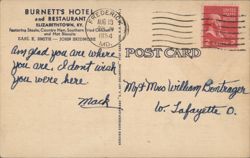 BURNETT'S HOTEL
and RESTAURANT
ELIZABETHTOWN, KY.
Featuring Steaks, Country Ham, Southern Fried Chicken
and Hot Biscuits
EARL R. SMITH — JOHN SKIDMORE
FREDERICK
AUG 13
1954
MD.
POST CARD
Am glad you are where
you are, I don't wish
you were here
Mack
Mr & Mrs William Bontrager
W. Lafayette O.